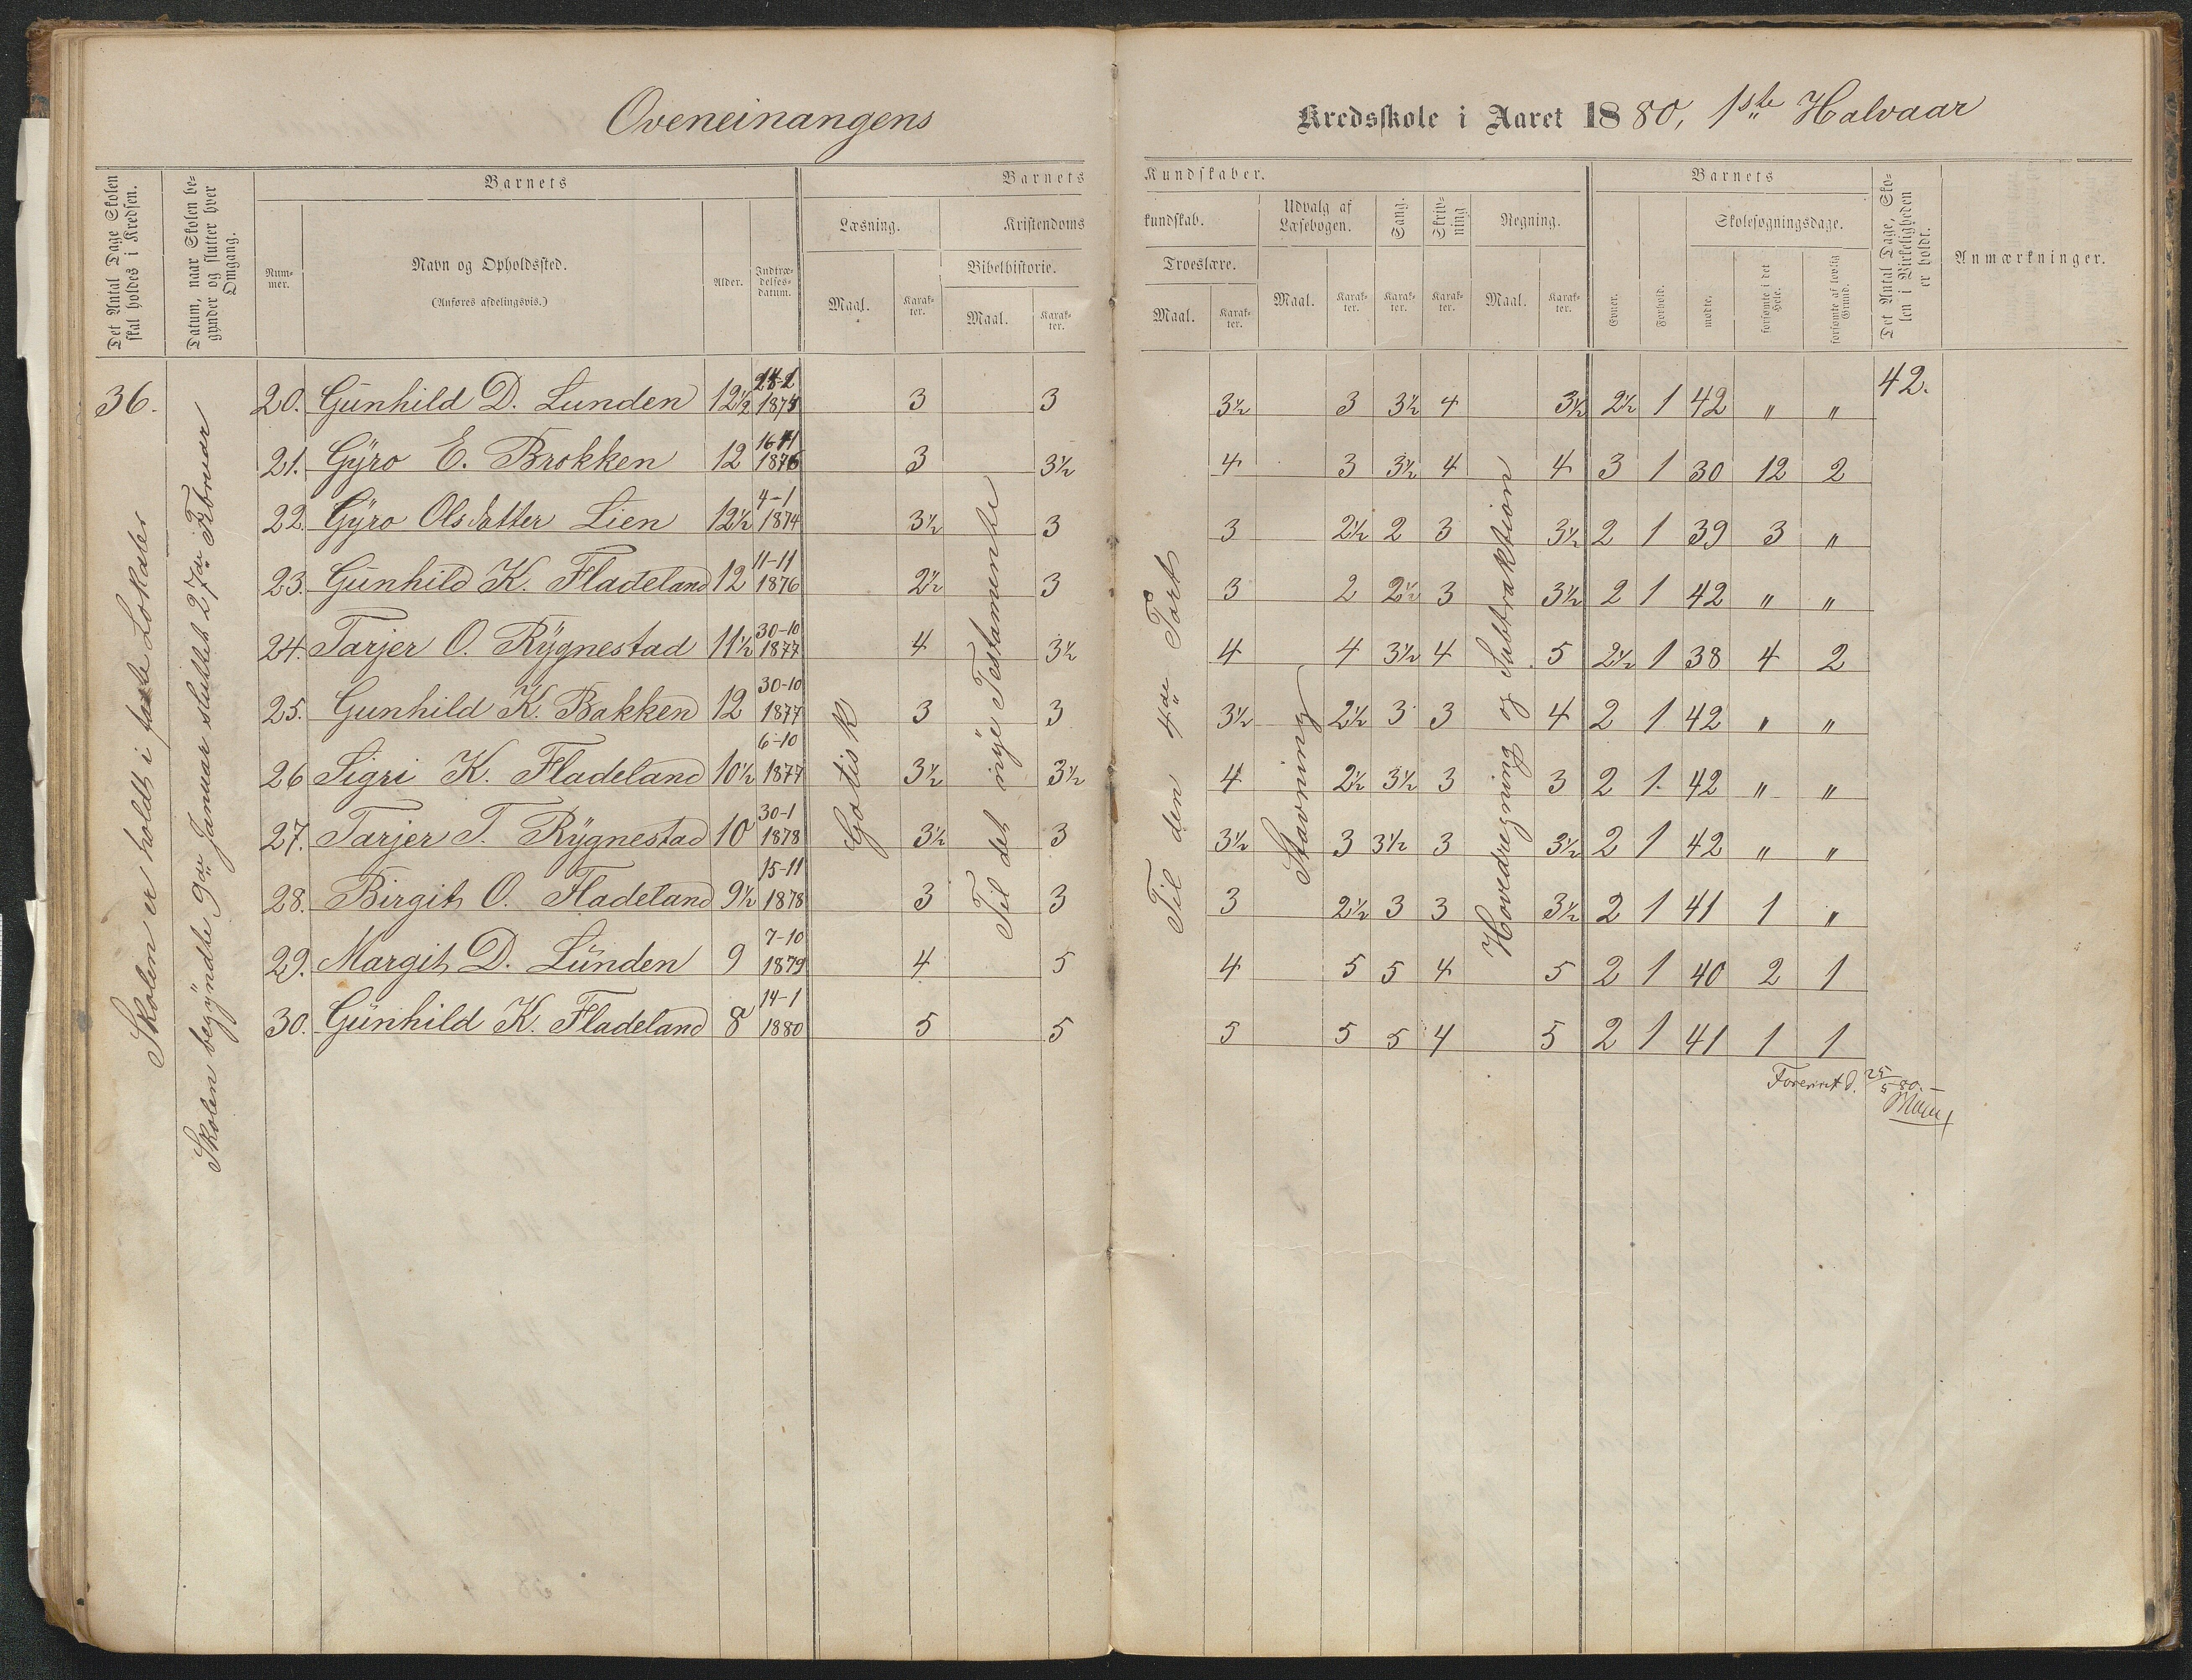 Oveneinangens Kredsskole i Aaret 1880, 1ste Halvaar
Det Antal Dage Skolen skal holdes i Kredsen.
Datum, naar Skolen begynder og slutter hver Omgang.
Barnets
Nummer.
Navn og Opholdssted.
(Anføres afdelingsvis.)
Alder.
Indtrædelsesdatum.
Barnets Kundskaber.
Læsning.
Maal.
Karakter.
Kristendomskundskab.
Bibelhistorie.
Maal.
Karakter.
Troeslære.
Maal.
Karakter.
Udvalg af Læsebogen.
Maal.
Karakter.
Sang.
Karakter.
Skrivning
Karakter.
Regning.
Maal.
Karakter.
Barnets
Evner.
Forhold.
Skolesøgningsdage.
mødte.
forsømte i det Hele.
forsømte af lovlig Grund.
Det Antal Dage, Skolen i Virkeligheden er holdt.
Anmærkninger.
36.
Skolen er holdt i faste Lokaler
Skolen begÿndte 9de Januar sluttet 27de Februar
Gotisk
Til det nÿe Testamente
Til den 4de Part
Stavning
Hovedregning og Subtraktion
20. Gunhild D. Lunden 12½ 1875 3 3 3½ 3 3½ 4 3½ 2½ 1 42 " " 42.
21. Gÿro E. Brokken 12 1876 3 3½ 4 3 3½ 4 4 3 1 30 12 2
22. Gÿro Olsdatter Lien 12½ 4-1 1874 3½ 3 3 2½ 2 3 3½ 2 1 39 3 "
23. Gunhild K. Fladeland 12 11-11 1876 2½ 3 3 2 2½ 3 3½ 2 1 42 " "
24. Tarjer O. Rÿgnestad 11½ 30-10 1877 4 3½ 4 4 3½ 4 5 2½ 1 38 4 2
25. Gunhild K. Bakken 12 30-10 1877 3 3 3½ 2½ 3 3 4 2 1 42 " "
26 Sigri K. Fladeland 10½ 6-10 1877 3½ 3½ 4 2½ 3½ 3 3 2 1. 42 " "
27. Tarjer T. Rÿgnestad 10 30-1 1878 3½ 3 3½ 3 3½ 3 3½ 2 1 42 " "
28. Birgit O. Fladeland 9½ 15-11 1878 3 3 3 2½ 3 3 3½ 2 1 41 1 "
29. Margit D. Lunden 9 7-10 1879 4 5 4 5 5 4 5 2 1 40 2 1
30. Gunhild K. Fladeland 8 14-1 1880 5 5 5 5 5 4 5 2 1 41 1 1
25/5 80. –